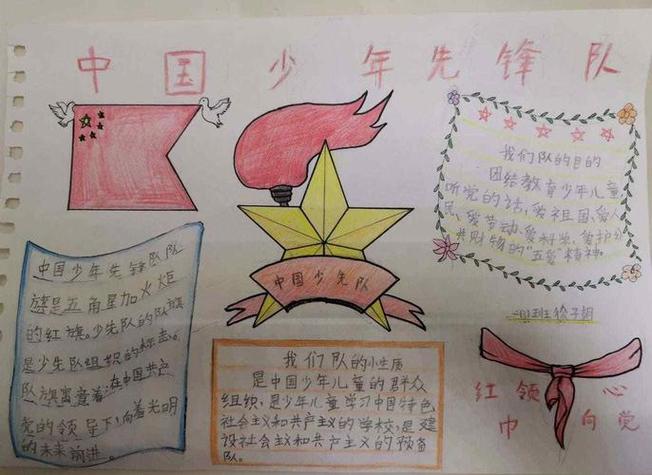 中国少年先锋队
我们队的目的
团结教育少年儿童
听党的话,爱祖国、爱人
民、爱劳动、爱科学、爱护公
共财物的“五爱”精神。
中国少先队
中国少年先锋队队
旗是五角星加火炬
的红旗。少先队的队旗
是少先队组织的标志。
队旗寓意着:在中国共产
党的领导下,向着光明
的未来前进。
我们队的性质
是中国少年儿童的群众
组织,是少年儿童学习中国特色
社会主义和共产主义的学校,是建
设社会主义和共产主义的预备
队。
红领巾
心向党